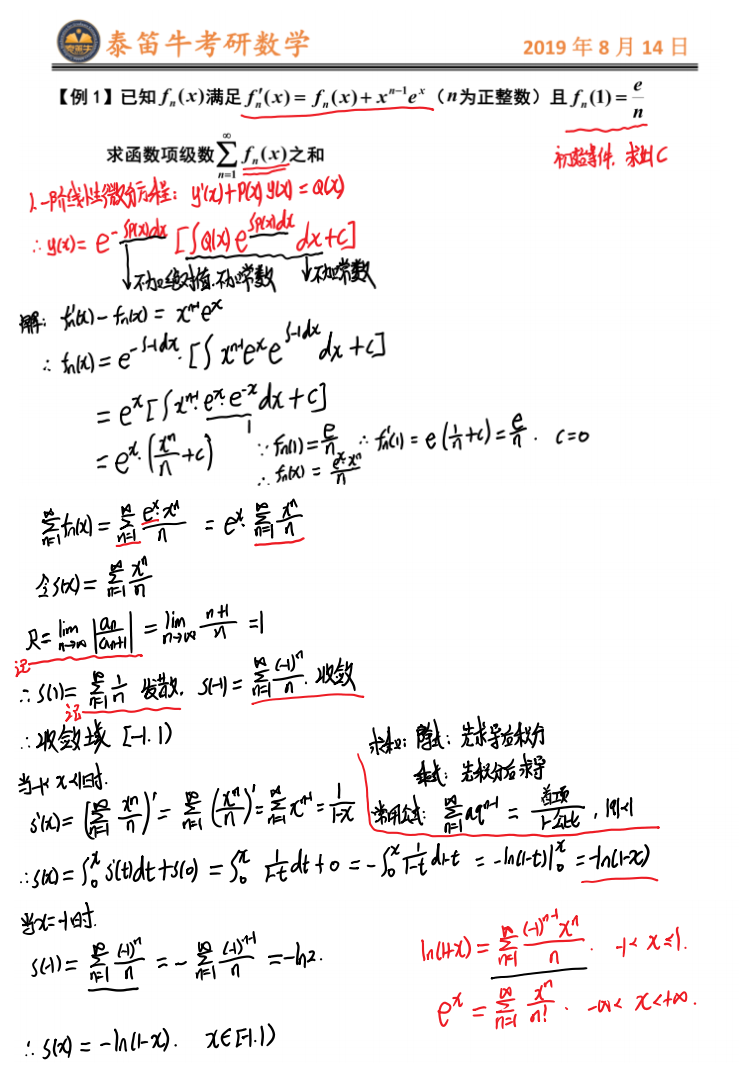 泰笛牛考研数学 2019 年 8 月 14 日
【例 1】已知 fₙ(x)满足 fₙ′(x) = fₙ(x) + xⁿ⁻¹eˣ（n 为正整数）且 fₙ(1) = e/n
求函数项级数 ∑_{n=1}^{∞} fₙ(x)之和
初始条件, 求出C
1. 一阶线性微分方程: y′(x)+P(x)y(x) = Q(x)
∴ y(x) = e^{-∫P(x)dx} [∫Q(x) e^{∫P(x)dx} dx + C]
不加绝对值.不加常数 不加常数
解: fₙ′(x) - fₙ(x) = xⁿ⁻¹eˣ
∴ fₙ(x) = e^{-∫-1dx}·[∫ xⁿ⁻¹eˣ e^{∫-1dx} dx + C]
= eˣ[∫xⁿ⁻¹·eˣ·e⁻ˣdx + C]
1
= eˣ·(xⁿ/n + C) ∵ fₙ(1) = e/n ∴ fₙ′(1) = e(1/n + C) = e/n. C=0
∴ fₙ(x) = eˣ·xⁿ/n
∑_{n=1}^{∞} fₙ(x) = ∑_{n=1}^{∞} eˣ·xⁿ/n = eˣ·∑_{n=1}^{∞} xⁿ/n
令S(x) = ∑_{n=1}^{∞} xⁿ/n
R = lim_{n→∞} |aₙ/aₙ₊₁| = lim_{n→∞} (n+1)/n = 1
记
∴ S(1) = ∑_{n=1}^{∞} 1/n 发散, S(-1) = ∑_{n=1}^{∞} (-1)ⁿ/n. 收敛
记
∴收敛域 [-1. 1)
求和: 除式: 先求导后积分
乘式: 先积分后求导
常用公式: ∑_{n=1}^{∞} aqⁿ⁻¹ = 首项/(1-公比), |q|<1
当-1< x <1时.
S′(x) = (∑_{n=1}^{∞} xⁿ/n)′ = ∑_{n=1}^{∞} (xⁿ/n)′ = ∑_{n=1}^{∞} xⁿ⁻¹ = 1/(1-x)
∴S(x) = ∫₀ˣ S′(t)dt + S(0) = ∫₀ˣ 1/(1-t) dt + 0 = -∫₀ˣ 1/(1-t) d1-t = -ln(1-t)|₀ˣ = -ln(1-x)
当x=-1时.
S(-1) = ∑_{n=1}^{∞} (-1)ⁿ/n = -∑_{n=1}^{∞} (-1)ⁿ⁻¹/n = -ln2.
ln(1+x) = ∑_{n=1}^{∞} (-1)ⁿ⁻¹xⁿ/n. -1< x ≤1.
eˣ = ∑_{n=1}^{∞} xⁿ/n!. -∞< x <+∞.
∴ S(x) = -ln(1-x). x∈[-1.1)